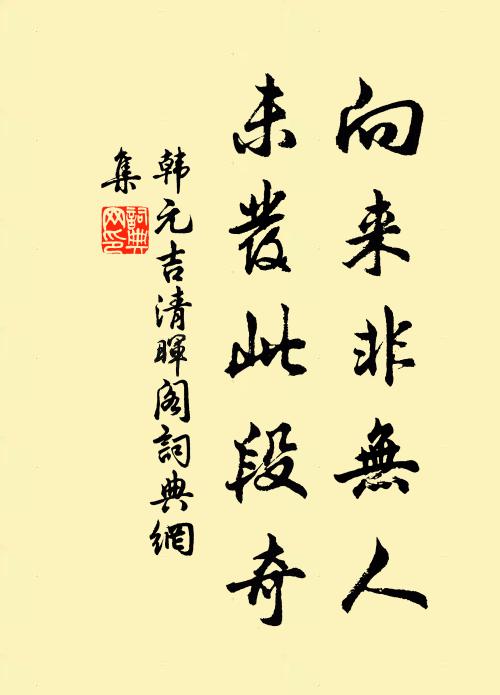 向来非無人
未發此段奇
韩元吉清暉阁詞典網
集
詞典網印